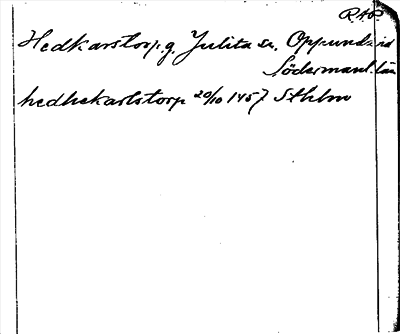 R.A.P.
Hedkarstorp. g. Julita sn. Oppunda hd
Södermanl. län
hedhekarlstorp 20/10 1457 Sthlm